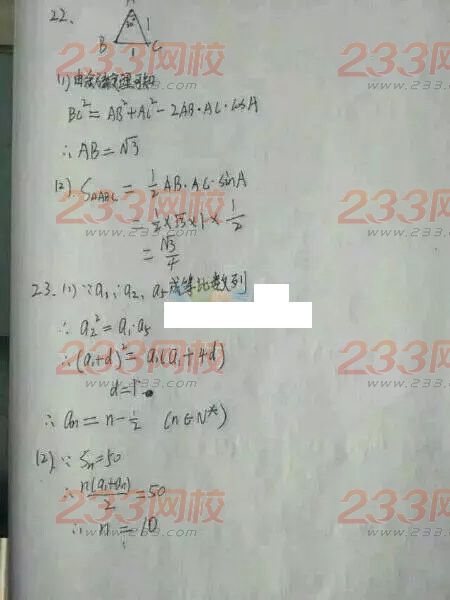 22.
A
30°
1
B
C
1
(1) 由余弦定理可知
BC²=AB²+AC²-2AB·AC·cosA
∴AB=√3
(2). S△ABC = 1/2 AB·AC·sinA
= 1/2×√3×1×1/2
= √3/4
23.(1)∵a₁,a₂,a₅成等比数列
∴a₂²=a₁·a₅
∴(a₁+d)²=a₁(a₁+4d)
d=1
∴an=n-1/2 (n∈N*)
(2).∵Sn=50
∴n(a₁+an)/2=50
∴n=10
233网校
233网校
233网校
233网校
233网校
233网校
233网校
233网校